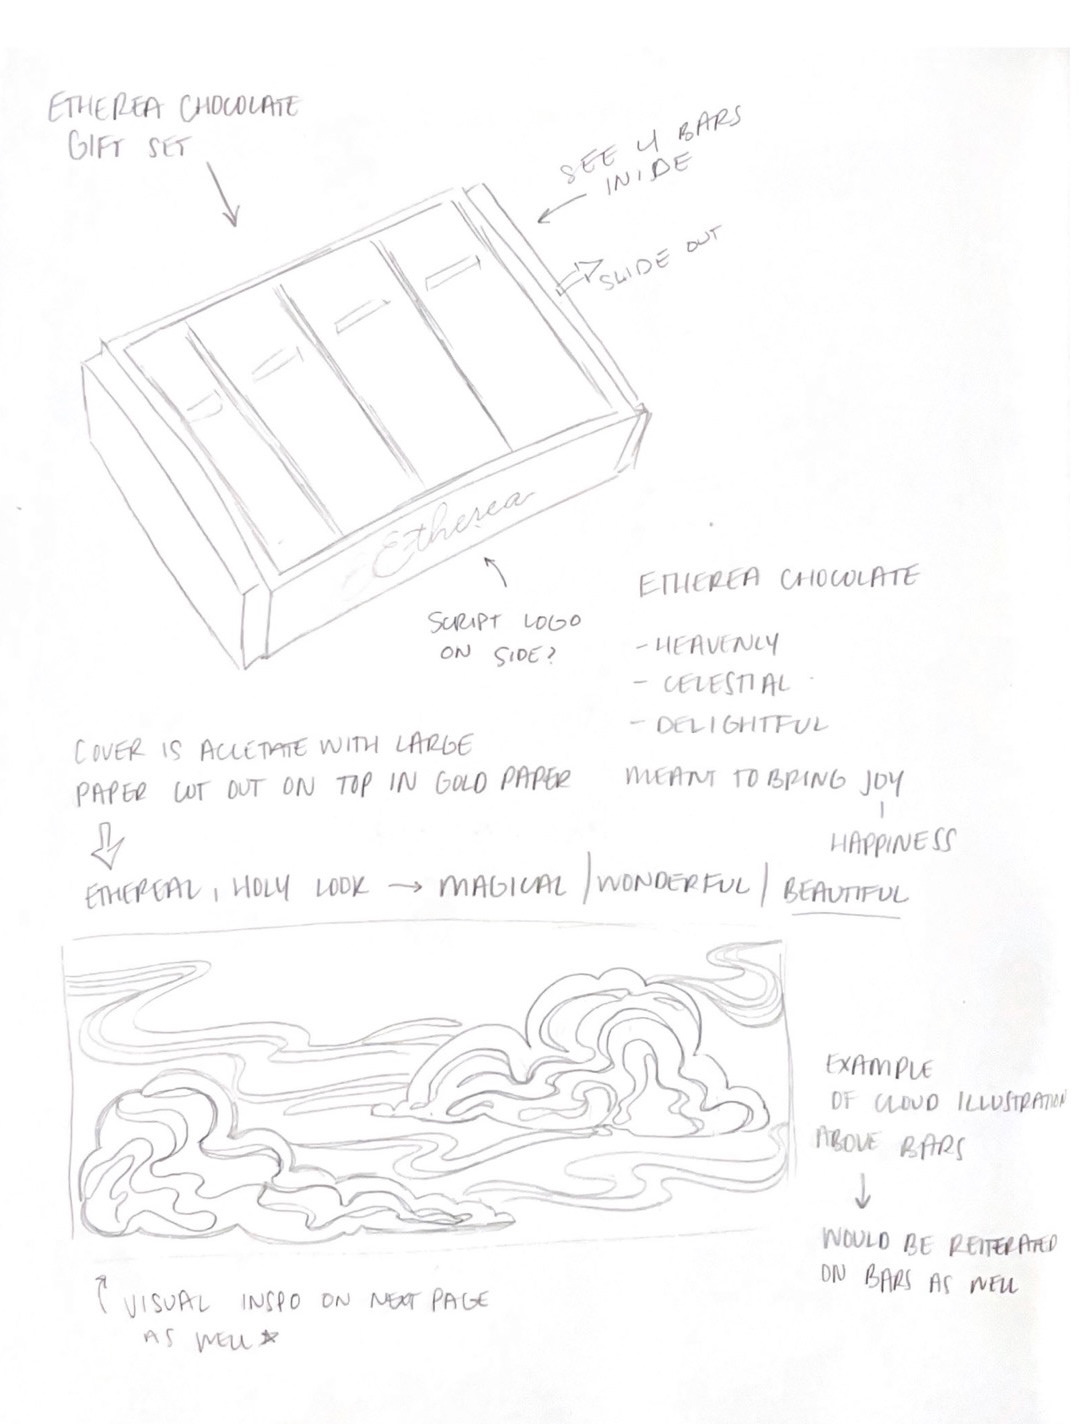 ETHEREA CHOCOLATE
GIFT SET
SEE 4 BARS
INIDE
SLIDE OUT
Etherea
SCRIPT LOGO
ON SIDE?
ETHEREA CHOCOLATE
- HEAVENLY
- CELESTIAL
- DELIGHTFUL
MEANT TO BRING JOY
HAPPINESS
COVER IS ACCETATE WITH LARGE
PAPER CUT OUT ON TOP IN GOLD PAPER
ETHEREAL, HOLY LOOK → MAGICAL / WONDERFUL / BEAUTIFUL
EXAMPLE
OF CLOUD ILLUSTRATION
ABOVE BARS
WOULD BE REITERATED
ON BARS AS WELL
VISUAL INSPO ON NEXT PAGE
AS WELL ☆